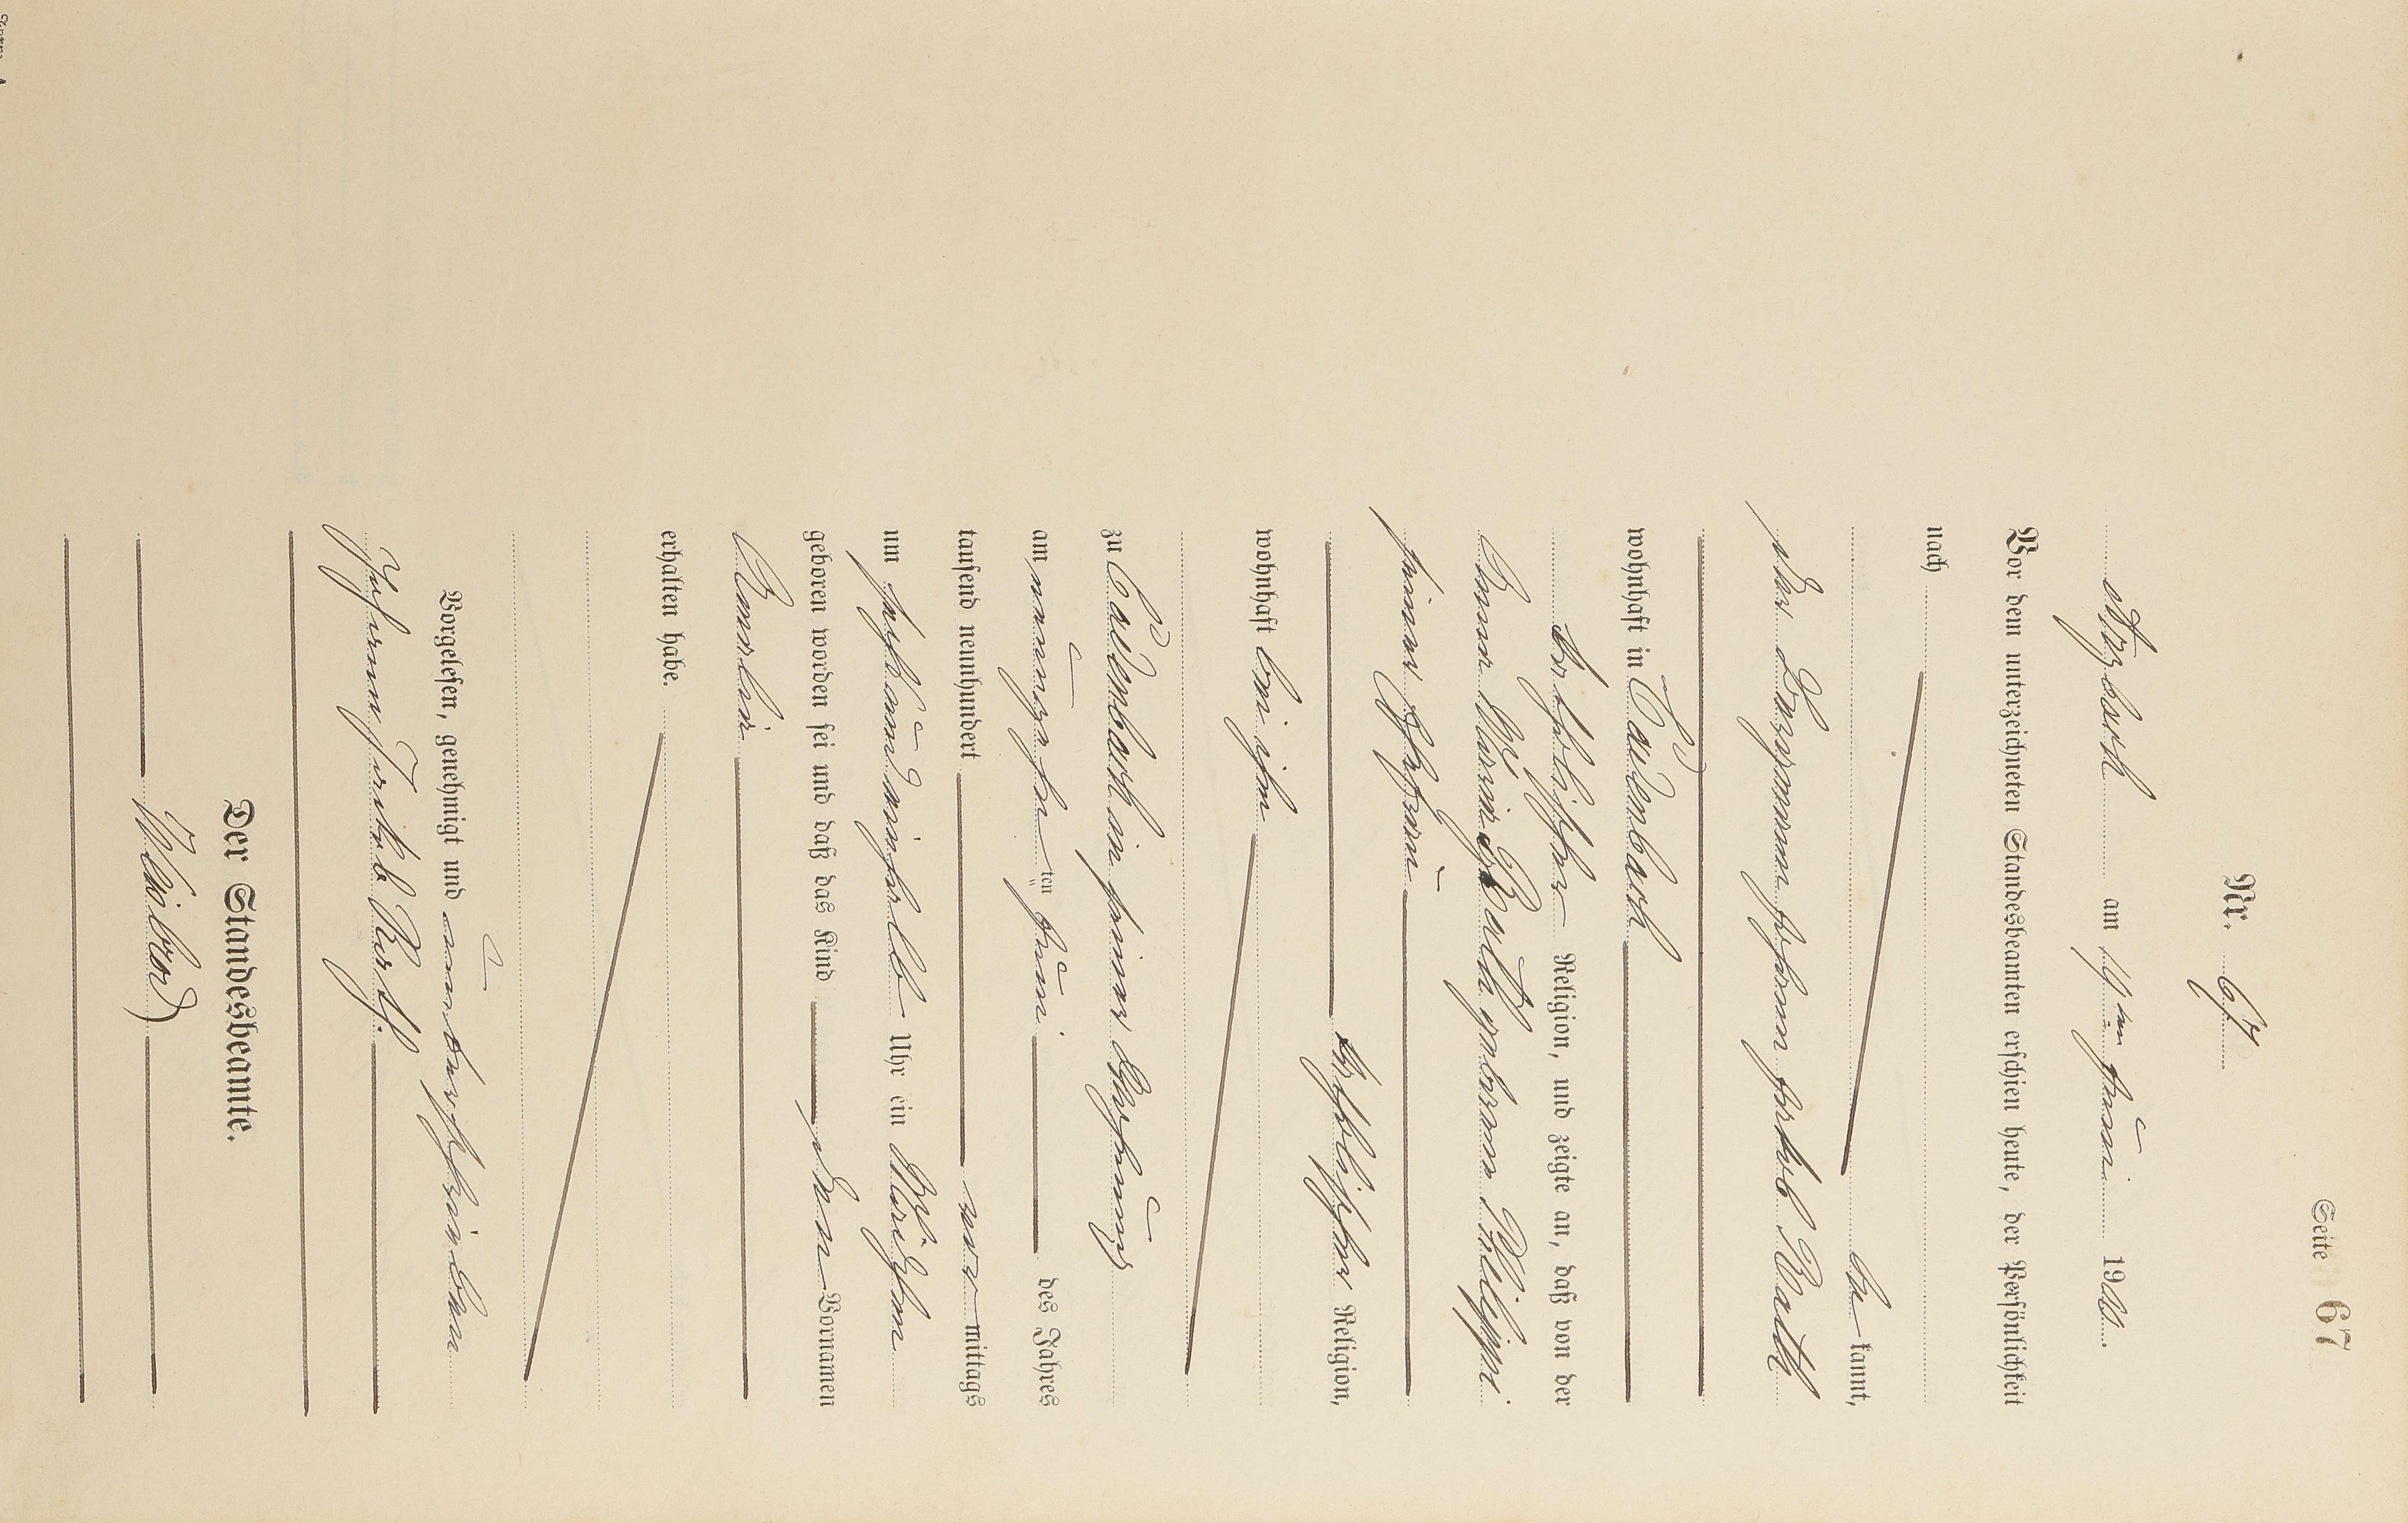 Seite 67
Nr. 67
am 19ten Juni 19
Vor dem unterzeichneten Standesbeamten erschien heute, der Persönlichkeit
nach
be kannt,
der Bergmann Johann Jakob Barth
wohnhaft in Eidenbach
katholischer Religion, und zeigte an, daß von der
Anna Maria Barth geborenen Philippi
seiner Ehefrau
katholischer Religion,
wohnhaft bei ihm
zu Eidenbach in seiner Wohnung
am neunzehn ten Juni des Jahres
tausend neunhundert vor mittags
um sechs und einhalb Uhr ein Mädchen
geboren worden sei und daß das Kind den Vornamen
Amalia
erhalten habe.
Vorgelesen, genehmigt und unterschrieben
Johann Jakob
Der Standesbeamte.